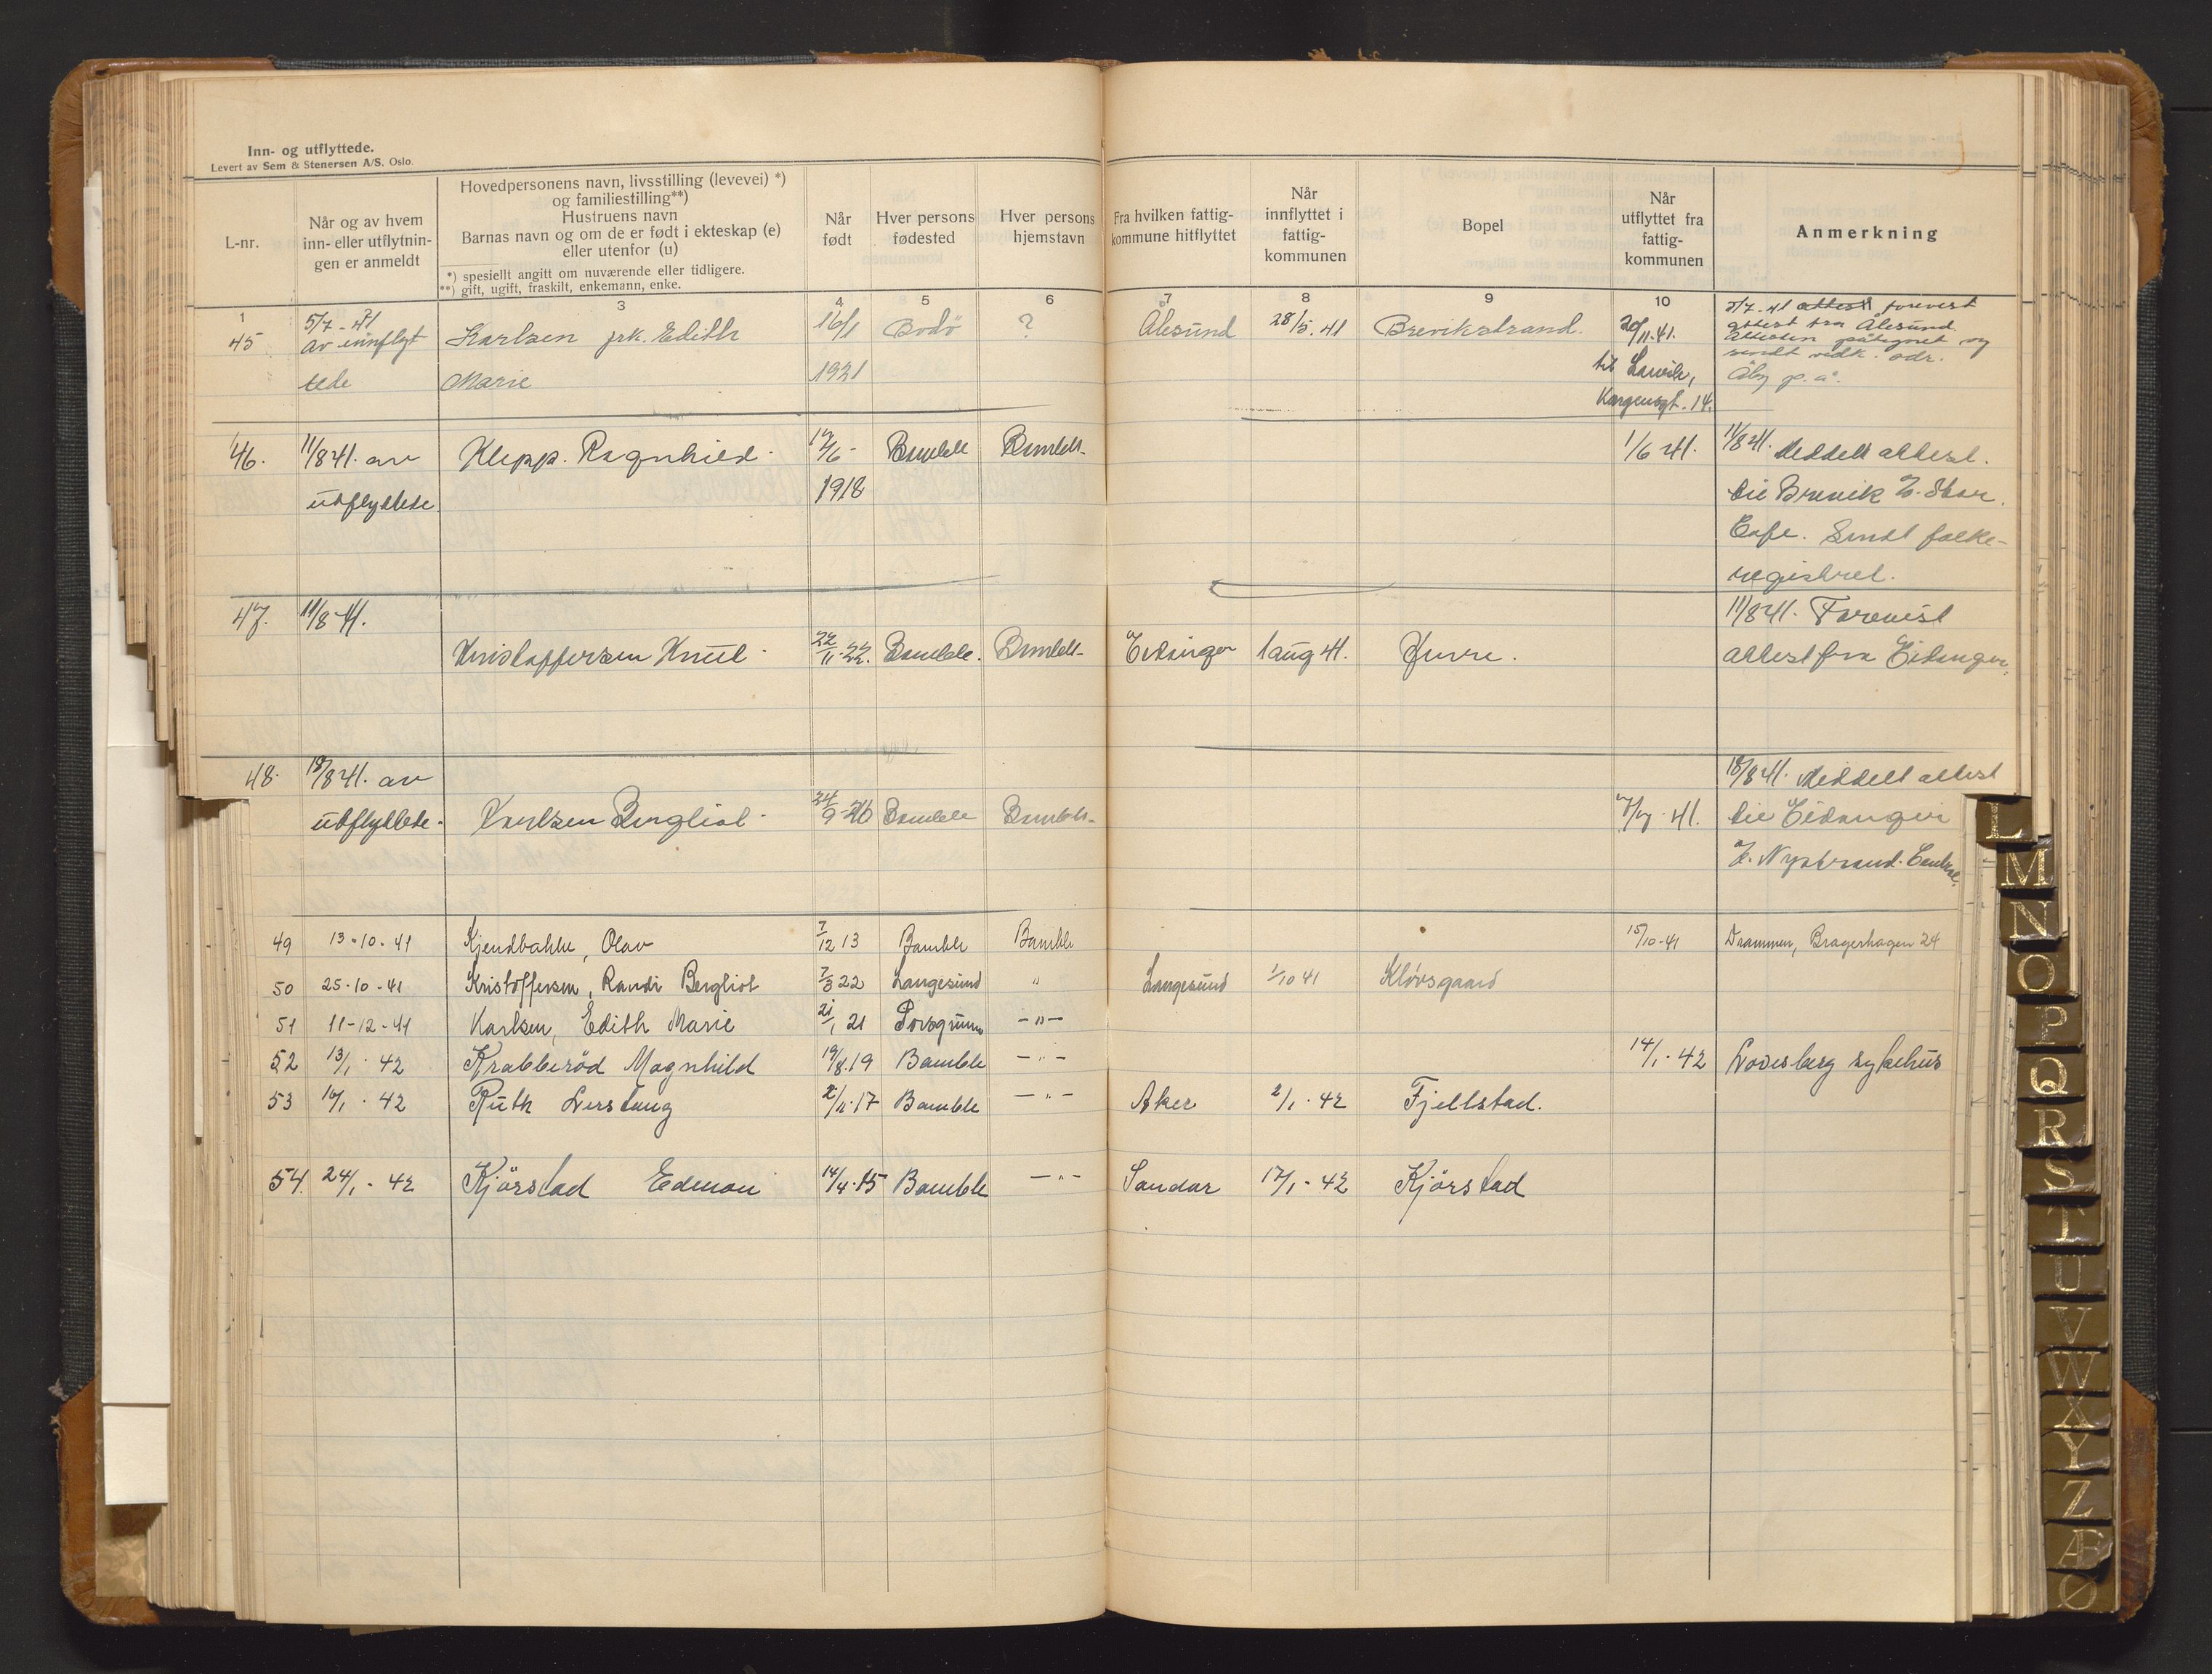 Inn- og utflyttede.
Levert av Sem & Stenersen A/S. Oslo.
L-nr.
Når og av hvem
inn- eller utflytnin-
gen er anmeldt
Hovedpersonens navn, livsstilling (levevei) *)
og familiestilling**)
Hustruens navn
Barnas navn og om de er født i ekteskap (e)
eller utenfor (u)
*) spesiellt angitt om nuværende eller tidligere.
**) gift, ugift, fraskilt, enkemann, enke.
Når
født
Hver persons
fødested
Hver persons
hjemstavn
Fra hvilken fattig-
kommune hitflyttet
Når
innflyttet i
fattig-
kommunen
Bopel
Når
utflyttet fra
fattig-
kommunen
Anmerkning
1 3 4 5 6 7 8 9 10
45 5/7-41 Karlsen frk. Edith 16/1 Bodö ? Ålesund 28/5.41 Brevikstrand. 20/11.41. 5/7.41 attest forevist
av innflyt attest fra Ålesund
tede Marie 1921 til Larvik, Attesten påtegnet og
sendt vedk.
Åby p.å.
46. 11/8 41. av Klepp. Ragnhild. Bamble Bamble- 1/6 41. 11/8 41. Meddelt attest.
utflyttede 1918 til Brevik
Cafe. Sendt folke-
registret.
47. 11/8-41. 11/8 41. Forevist
Kristoffersen Knut. 22/11-22. Bamble. Bamble- Eidanger 1 aug 41. attest fra Eidanger.
48. 18/8 41. av 18/8 41. Meddelt attest
utflyttede. Karlsen Bergliot. 24/9-26 Bamble Bamble- 7/7.41. til Eidanger
Nystrand.
49 13-10-41 Kjendbakke, Olav 7/12 13 Bamble Bamble 15/10-41 Drammen, Bragerhagen 24
50 25-10-41 Kristoffersen, Randi Bergliot 7/3 22 Langesund " Langesund 1/10 41 Kløvsgaard
51 11-12-41 Karlsen, Edith Marie 21/1 21 Porsgrunn -"-
52 13/1.42 Krabberöd Magnhild 19/8.19 Bamble -"- 14/1-42 Lovisberg sykehus
53 16/1.42 Ruth Lerstang 2/11.17 Bamble -"- Aker 2/1.42 Fjellstad.
54. 24/1-42 Kjörstad 14/4.15 Bamble -"- Sandar 17/1-42 Kjörstad
L
M
N
O
P
Q
R
S
T
U
V
W
X
Y
Z
Æ
Ø